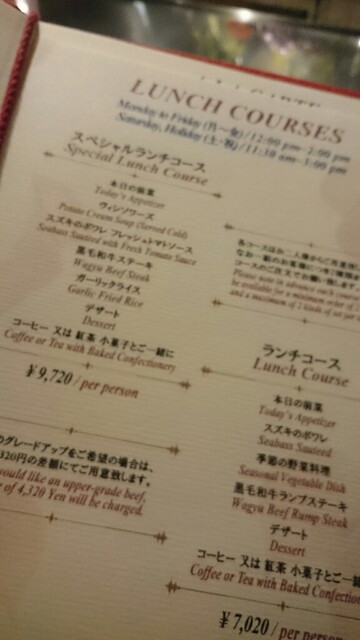 LUNCH COURSES
Monday to Friday (月～金) / 12:00 pm~2:00 pm
Saturday, Holiday (土・祝) / 11:30 am~3:00 pm
スペシャルランチコース
Special Lunch Course
本日の前菜
Today's Appetizer
ヴィシソワーズ
Potato Cream Soup (Served Cold)
スズキのポワレ フレッシュトマトソース
Seabass Sauteed with Fresh Tomato Sauce
黒毛和牛ステーキ
Wagyu Beef Steak
ガーリックライス
Garlic Fried Rice
デザート
Dessert
コーヒー 又は 紅茶 小菓子とご一緒に
Coffee or Tea with Baked Confectionery
¥9,720 / per person
のグレードアップをご希望の場合は、
320円の差額にてご用意致します。
would like an upper-grade beef,
of 4,320 Yen will be charged.
各コースはお二人様からご用意
なお一組のお客様につき2種類
コースのご注文でお願い致します。
Please note in advance each course
be available for a minimum order of
and a maximum of 2 kinds of set per
ランチコース
Lunch Course
本日の前菜
Today's Appetizer
スズキのポワレ
Seabass Sauteed
季節の野菜料理
Seasonal Vegetable Dish
黒毛和牛ランプステーキ
Wagyu Beef Rump Steak
デザート
Dessert
コーヒー 又は 紅茶 小菓子とご一緒
Coffee or Tea with Baked Confection
¥7,020 / per person